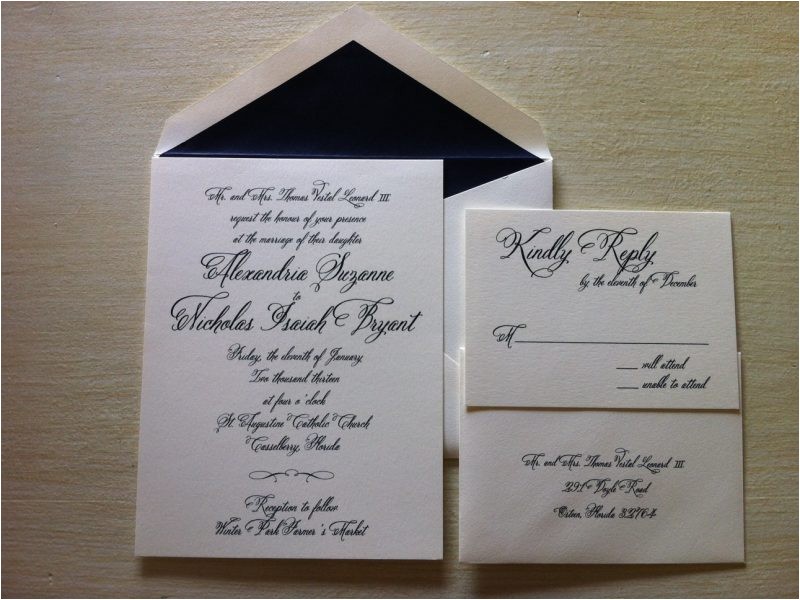 Mr. and Mrs. Thomas Vestal Leonard III
request the honour of your presence
at the marriage of their daughter
Alexandria Suzanne
to
Nicholas Isaiah Bryant
Friday, the eleventh of January
Two thousand thirteen
at four o'clock
St. Augustine Catholic Church
Casselberry, Florida
Reception to follow
Winter Park Farmer's Market
Kindly Reply
by the eleventh of December
M
will attend
unable to attend
Mr. and Mrs. Thomas Vestal Leonard III
291 Doyle Road
Osteen, Florida 32764